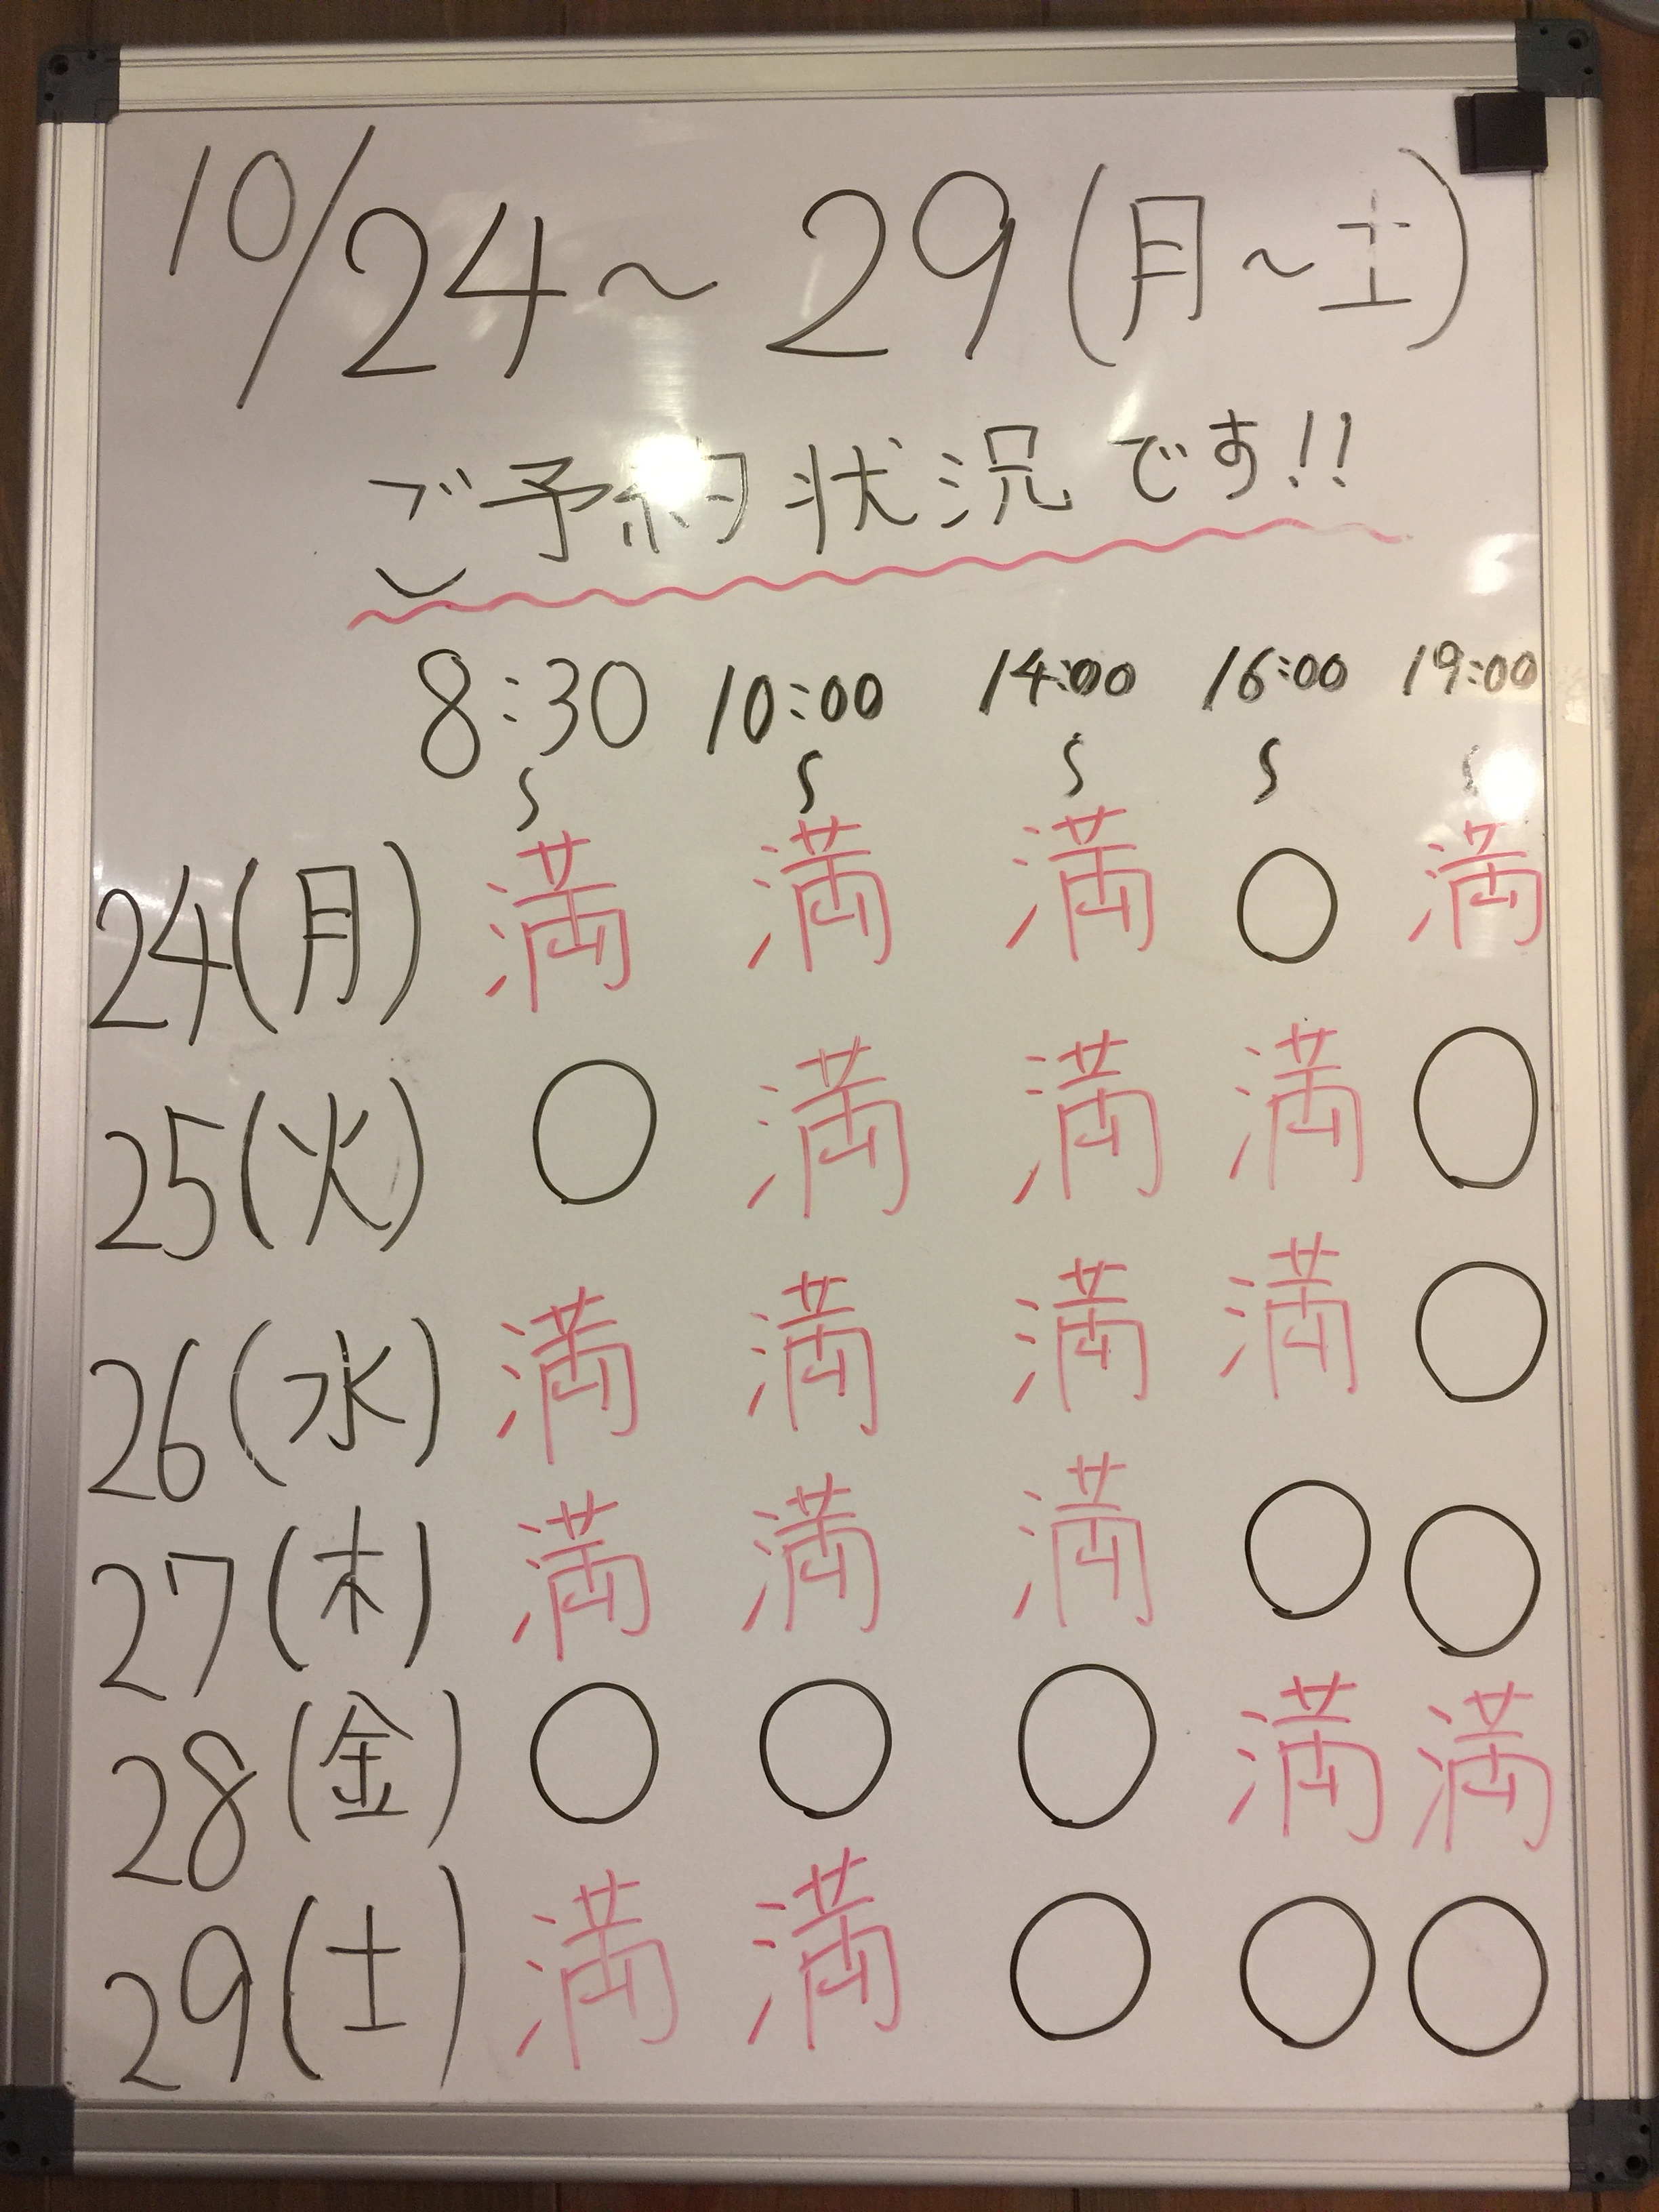 10/24～29(月～土)
ご予約状況です!!
8:30 10:00 14:00 16:00 19:00
～ ～ ～ ～ ～
24(月) 満 満 満 ○ 満
25(火) ○ 満 満 満 ○
26(水) 満 満 満 満 ○
27(木) 満 満 満 ○ ○
28(金) ○ ○ ○ 満 満
29(土) 満 満 ○ ○ ○